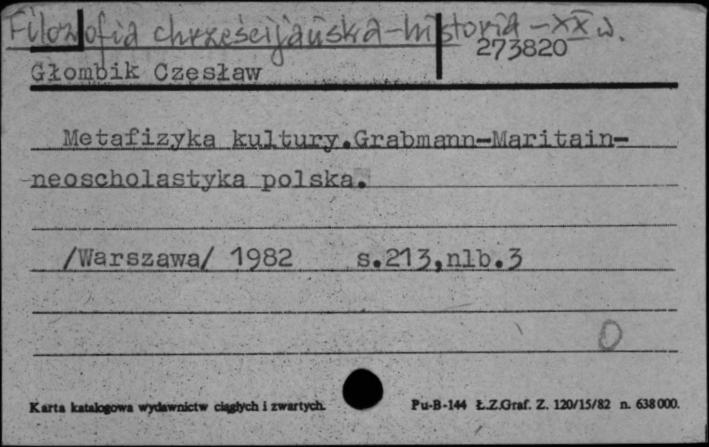 Filozofia chrześcijańska-historia-XX w.
273820
Głombik Czesław
Metafizyka kultury.Grabmann-Maritain-
-neoscholastyka polska.
/Warszawa/ 1982 s.213,nlb.3
0
Karta katalogowa wydawnictw ciągłych i zwartych.
Pu-B-144 Ł.Z.Graf. Z. 120/15/82 n. 638000.